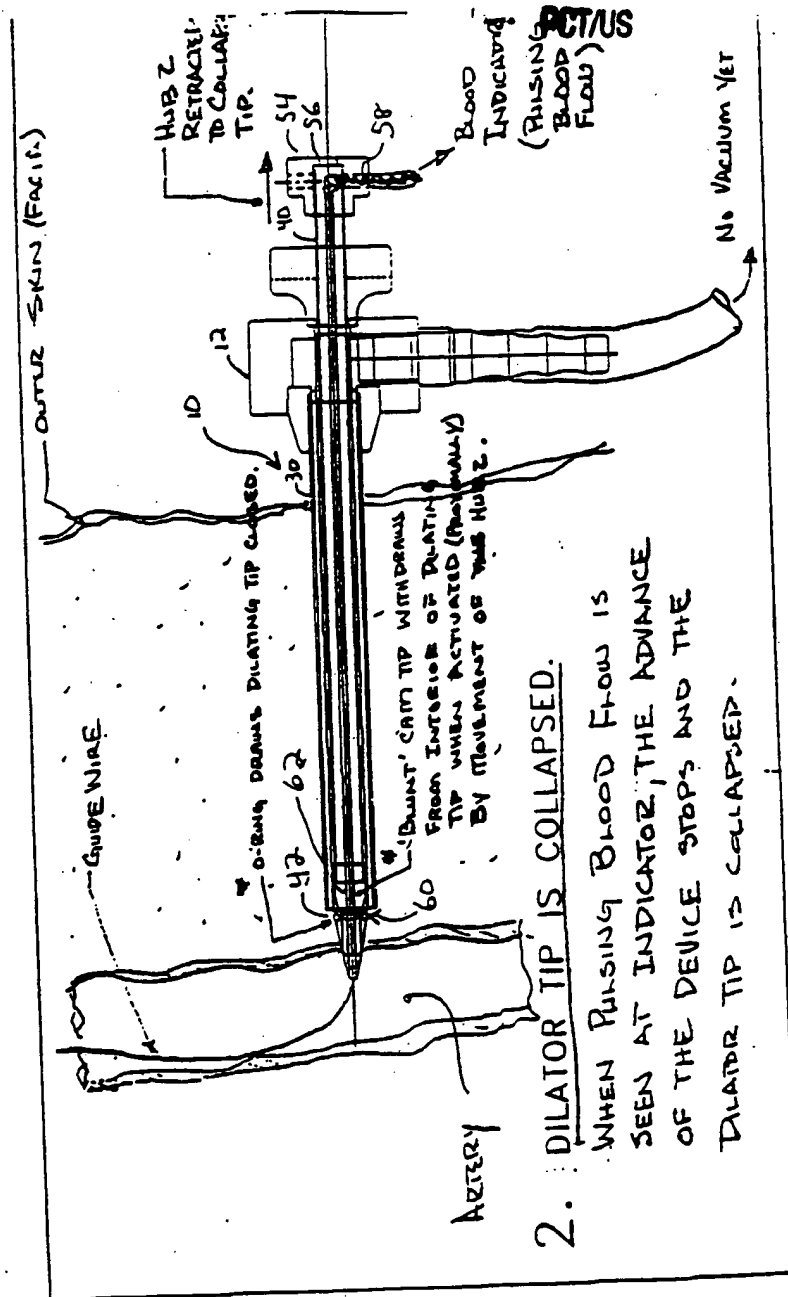 PCT/US
OUTER SKIN (FACIA)
HUB 2
RETRACTED
TO COLLAPSE
TIP.
54
56
58
40
BLOOD
INDICATOR
(PULSING
BLOOD
FLOW)
NO VACUUM YET
12
10
30
GUIDE WIRE
* O-RING DRAWS DILATING TIP CLOSED.
62
42
60
* 'BLUNT' CAM TIP WITHDRAWS
FROM INTERIOR OF DILATING
TIP WHEN ACTIVATED (PROXIMALLY)
BY MOVEMENT OF HUB 2.
ARTERY
2. DILATOR TIP IS COLLAPSED.
WHEN PULSING BLOOD FLOW IS
SEEN AT INDICATOR, THE ADVANCE
OF THE DEVICE STOPS AND THE
DILATOR TIP IS COLLAPSED.